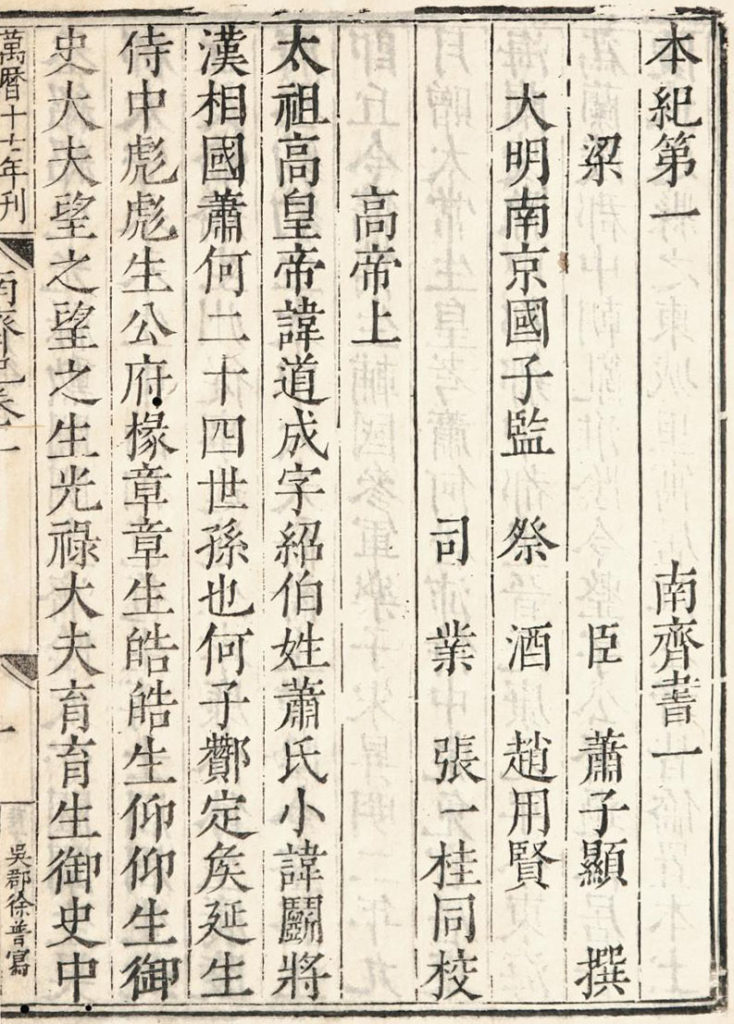 本紀第一 南齊書一
梁 臣 蕭子顯 撰
大明南京國子監 祭 酒 趙用賢
司 業 張一桂同校
高帝上
太祖高皇帝諱道成字紹伯姓蕭氏小諱鬭將
漢相國蕭何二十四世孫也何子酇定矦延生
侍中彪彪生公府掾章章生皓皓生仰仰生御
史大夫望之望之生光祿大夫育育生御史中
萬曆十七年刊 南齊紀卷一 一 吳郡徐普寫